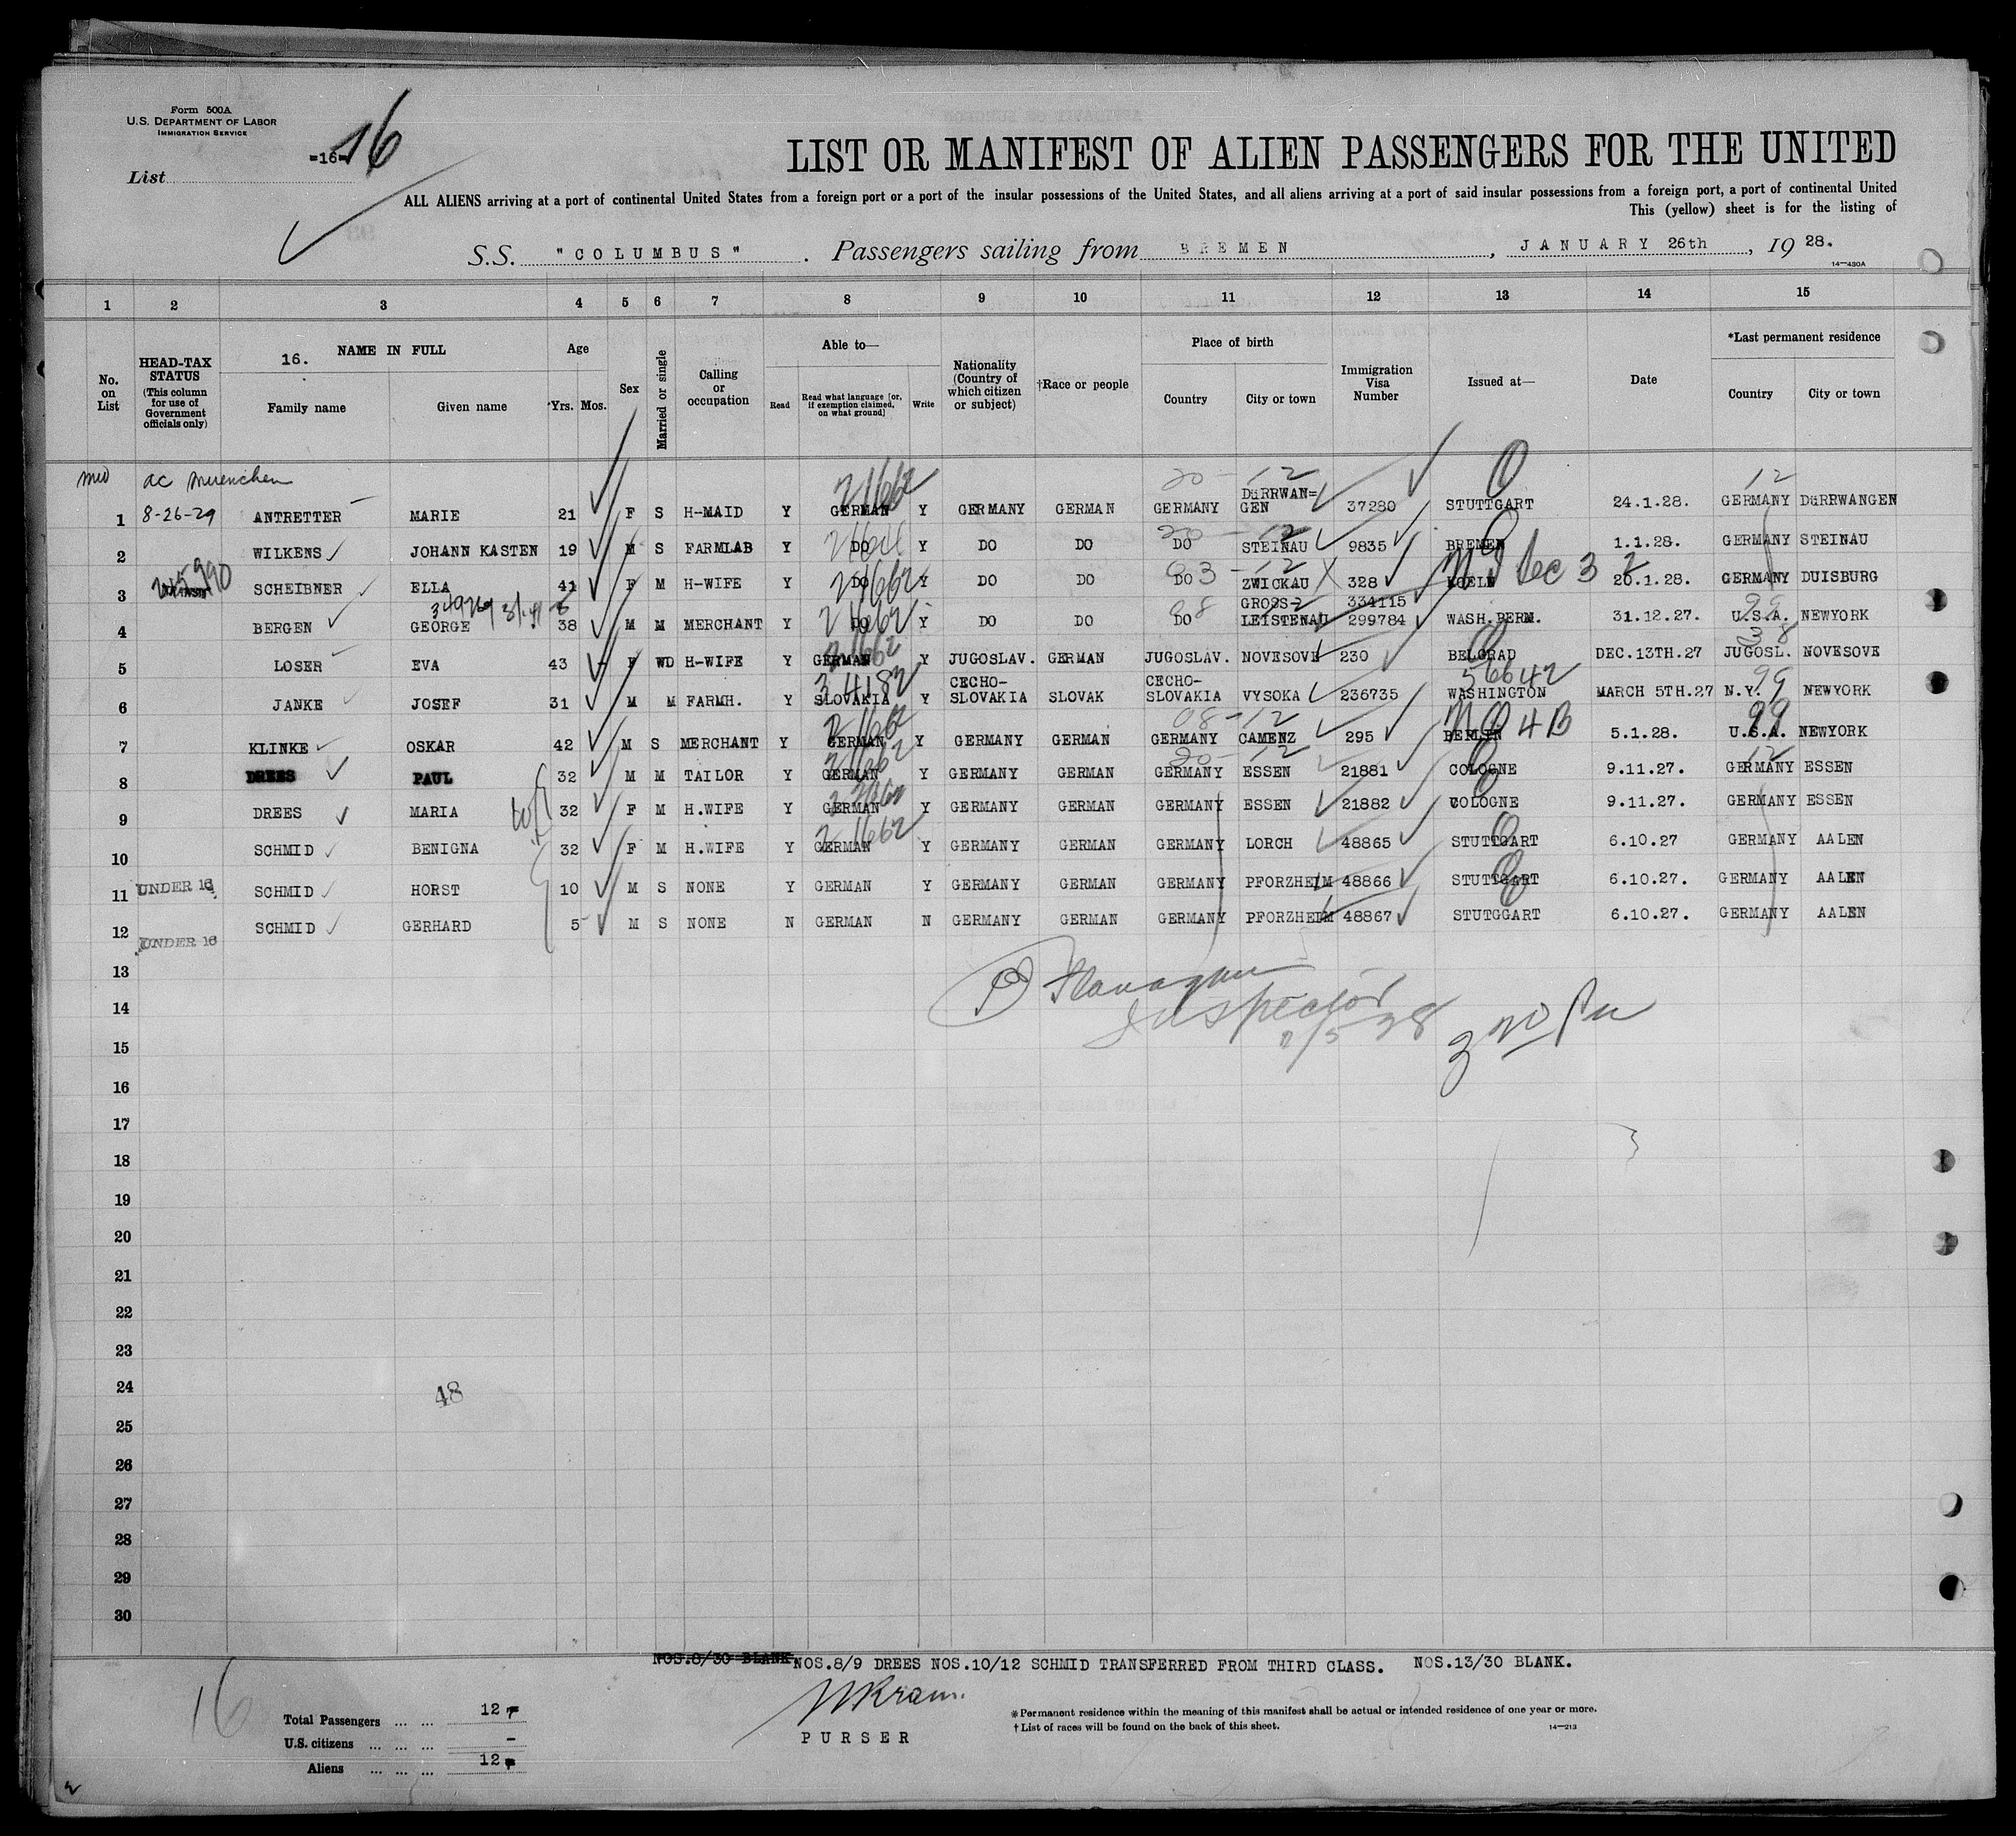 Form 500A
U.S. DEPARTMENT OF LABOR
IMMIGRATION SERVICE
List =16= 16
LIST OR MANIFEST OF ALIEN PASSENGERS FOR THE UNITED
ALL ALIENS arriving at a port of continental United States from a foreign port or a port of the insular possessions of the United States, and all aliens arriving at a port of said insular possessions from a foreign port, a port of continental United
This (yellow) sheet is for the listing of
S.S. "COLUMBUS". Passengers sailing from BREMEN, JANUARY 26th, 19 28.
14—430A
1 2 3 4 5 6 7 8 9 10 11 12 13 14 15
No. on List
HEAD-TAX STATUS (This column for use of Government officials only)
16. NAME IN FULL
Family name Given name
Age
Yrs. Mos.
Sex
Married or single
Calling or occupation
Able to—
Read
Read what language [or, if exemption claimed, on what ground]
Write
Nationality (Country of which citizen or subject)
†Race or people
Place of birth
Country City or town
Immigration Visa Number
Issued at—
Date
*Last permanent residence
Country City or town
ac Muenchen 20-12 12
1 8-26-29 ANTRETTER MARIE 21 F S H-MAID Y GERMAN 21662 Y GERMANY GERMAN GERMANY DüRRWAN=GEN 37280 STUTTGART 24.1.28. GERMANY DüRRWANGEN
2 WILKENS JOHANN KASTEN 19 M S FARMLAB Y DO Y DO DO DO 20-12 STEINAU 9835 BREMEN 1.1.28. GERMANY STEINAU
3 SCHEIBNER ELLA 41 F M H-WIFE Y DO 21662 Y DO DO DO 03-12 ZWICKAU 328 KOELN 20.1.28. GERMANY DUISBURG
4 BERGEN GEORGE 38 M M MERCHANT Y DO 21662 Y DO DO DO GROSS-LEISTENAU 334115 299784 WASH.BERM. 31.12.27. U.S.A. 99 NEWYORK
5 LOSER EVA 43 F WD H-WIFE Y GERMAN 21662 Y JUGOSLAV. GERMAN JUGOSLAV. NOVESOVE 230 BELGRAD DEC.13TH.27 JUGOSL. 38 NOVESOVE
6 JANKE JOSEF 31 M M FARMH. Y SLOVAKIA 34182 Y CECHO-SLOVAKIA SLOVAK CECHO-SLOVAKIA VYSOKA 236735 WASHINGTON 56642 MARCH 5TH.27 N.Y. 99 NEWYORK
7 KLINKE OSKAR 42 M S MERCHANT Y GERMAN 21662 Y GERMANY GERMAN GERMANY 08-12 CAMENZ 295 BERLIN NQ4B 5.1.28. U.S.A. 99 NEWYORK
8 DREES PAUL 32 M M TAILOR Y GERMAN 21662 Y GERMANY GERMAN GERMANY 20-12 ESSEN 21881 COLOGNE 9.11.27. GERMANY 12 ESSEN
9 DREES MARIA 32 F M H.WIFE Y GERMAN Y GERMANY GERMAN GERMANY ESSEN 21882 COLOGNE 9.11.27. GERMANY ESSEN
10 SCHMID BENIGNA 32 F M H.WIFE Y GERMAN 21662 Y GERMANY GERMAN GERMANY LORCH 48865 STUTTGART 6.10.27 GERMANY AALEN
11 UNDER 16 SCHMID HORST 10 M S NONE Y GERMAN Y GERMANY GERMAN GERMANY PFORZHEIM 48866 STUTTGART 6.10.27. GERMANY AALEN
12 UNDER 16 SCHMID GERHARD 5 M S NONE N GERMAN N GERMANY GERMAN GERMANY PFORZHEIM 48867 STUTGGART 6.10.27. GERMANY AALEN
13
Flanagan
14
Inspector
15
16
17
18
19
20
21
22
23
24
48
25
26
27
28
29
30
NOS.8/30 BLANK NOS.8/9 DREES NOS.10/12 SCHMID TRANSFERRED FROM THIRD CLASS. NOS.13/30 BLANK.
16
Total Passengers ... ... 12
U.S. citizens ... ... ... -
Aliens ... ... ... 12
PURSER
* Permanent residence within the meaning of this manifest shall be actual or intended residence of one year or more.
† List of races will be found on the back of this sheet.
14—213